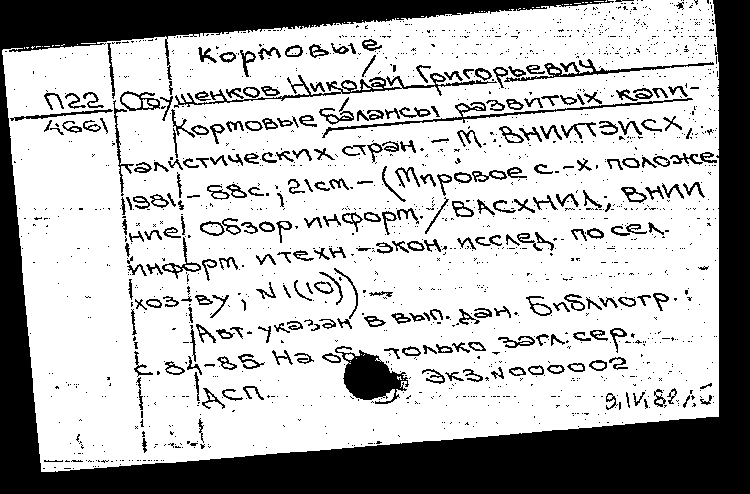 Кормовые
П22 Обушенков, Николай Григорьевич.
4661 Кормовые балансы развитых капи-
талистических стран. – М.: ВНИИТЭИСХ,
1981. – 88с.; 21см. – (Мировое с.-х. положе
ние. Обзор. информ. / ВАСХНИЛ; ВНИИ
информ. и техн.-экон. исслед. по сел.
хоз-ву; N 1(10)). –
Авт. указан в вып. дан. Библиогр.:
с. 84-88. На обл. только загл. сер.
ДСП. Экз. N 000002
9.IV.82